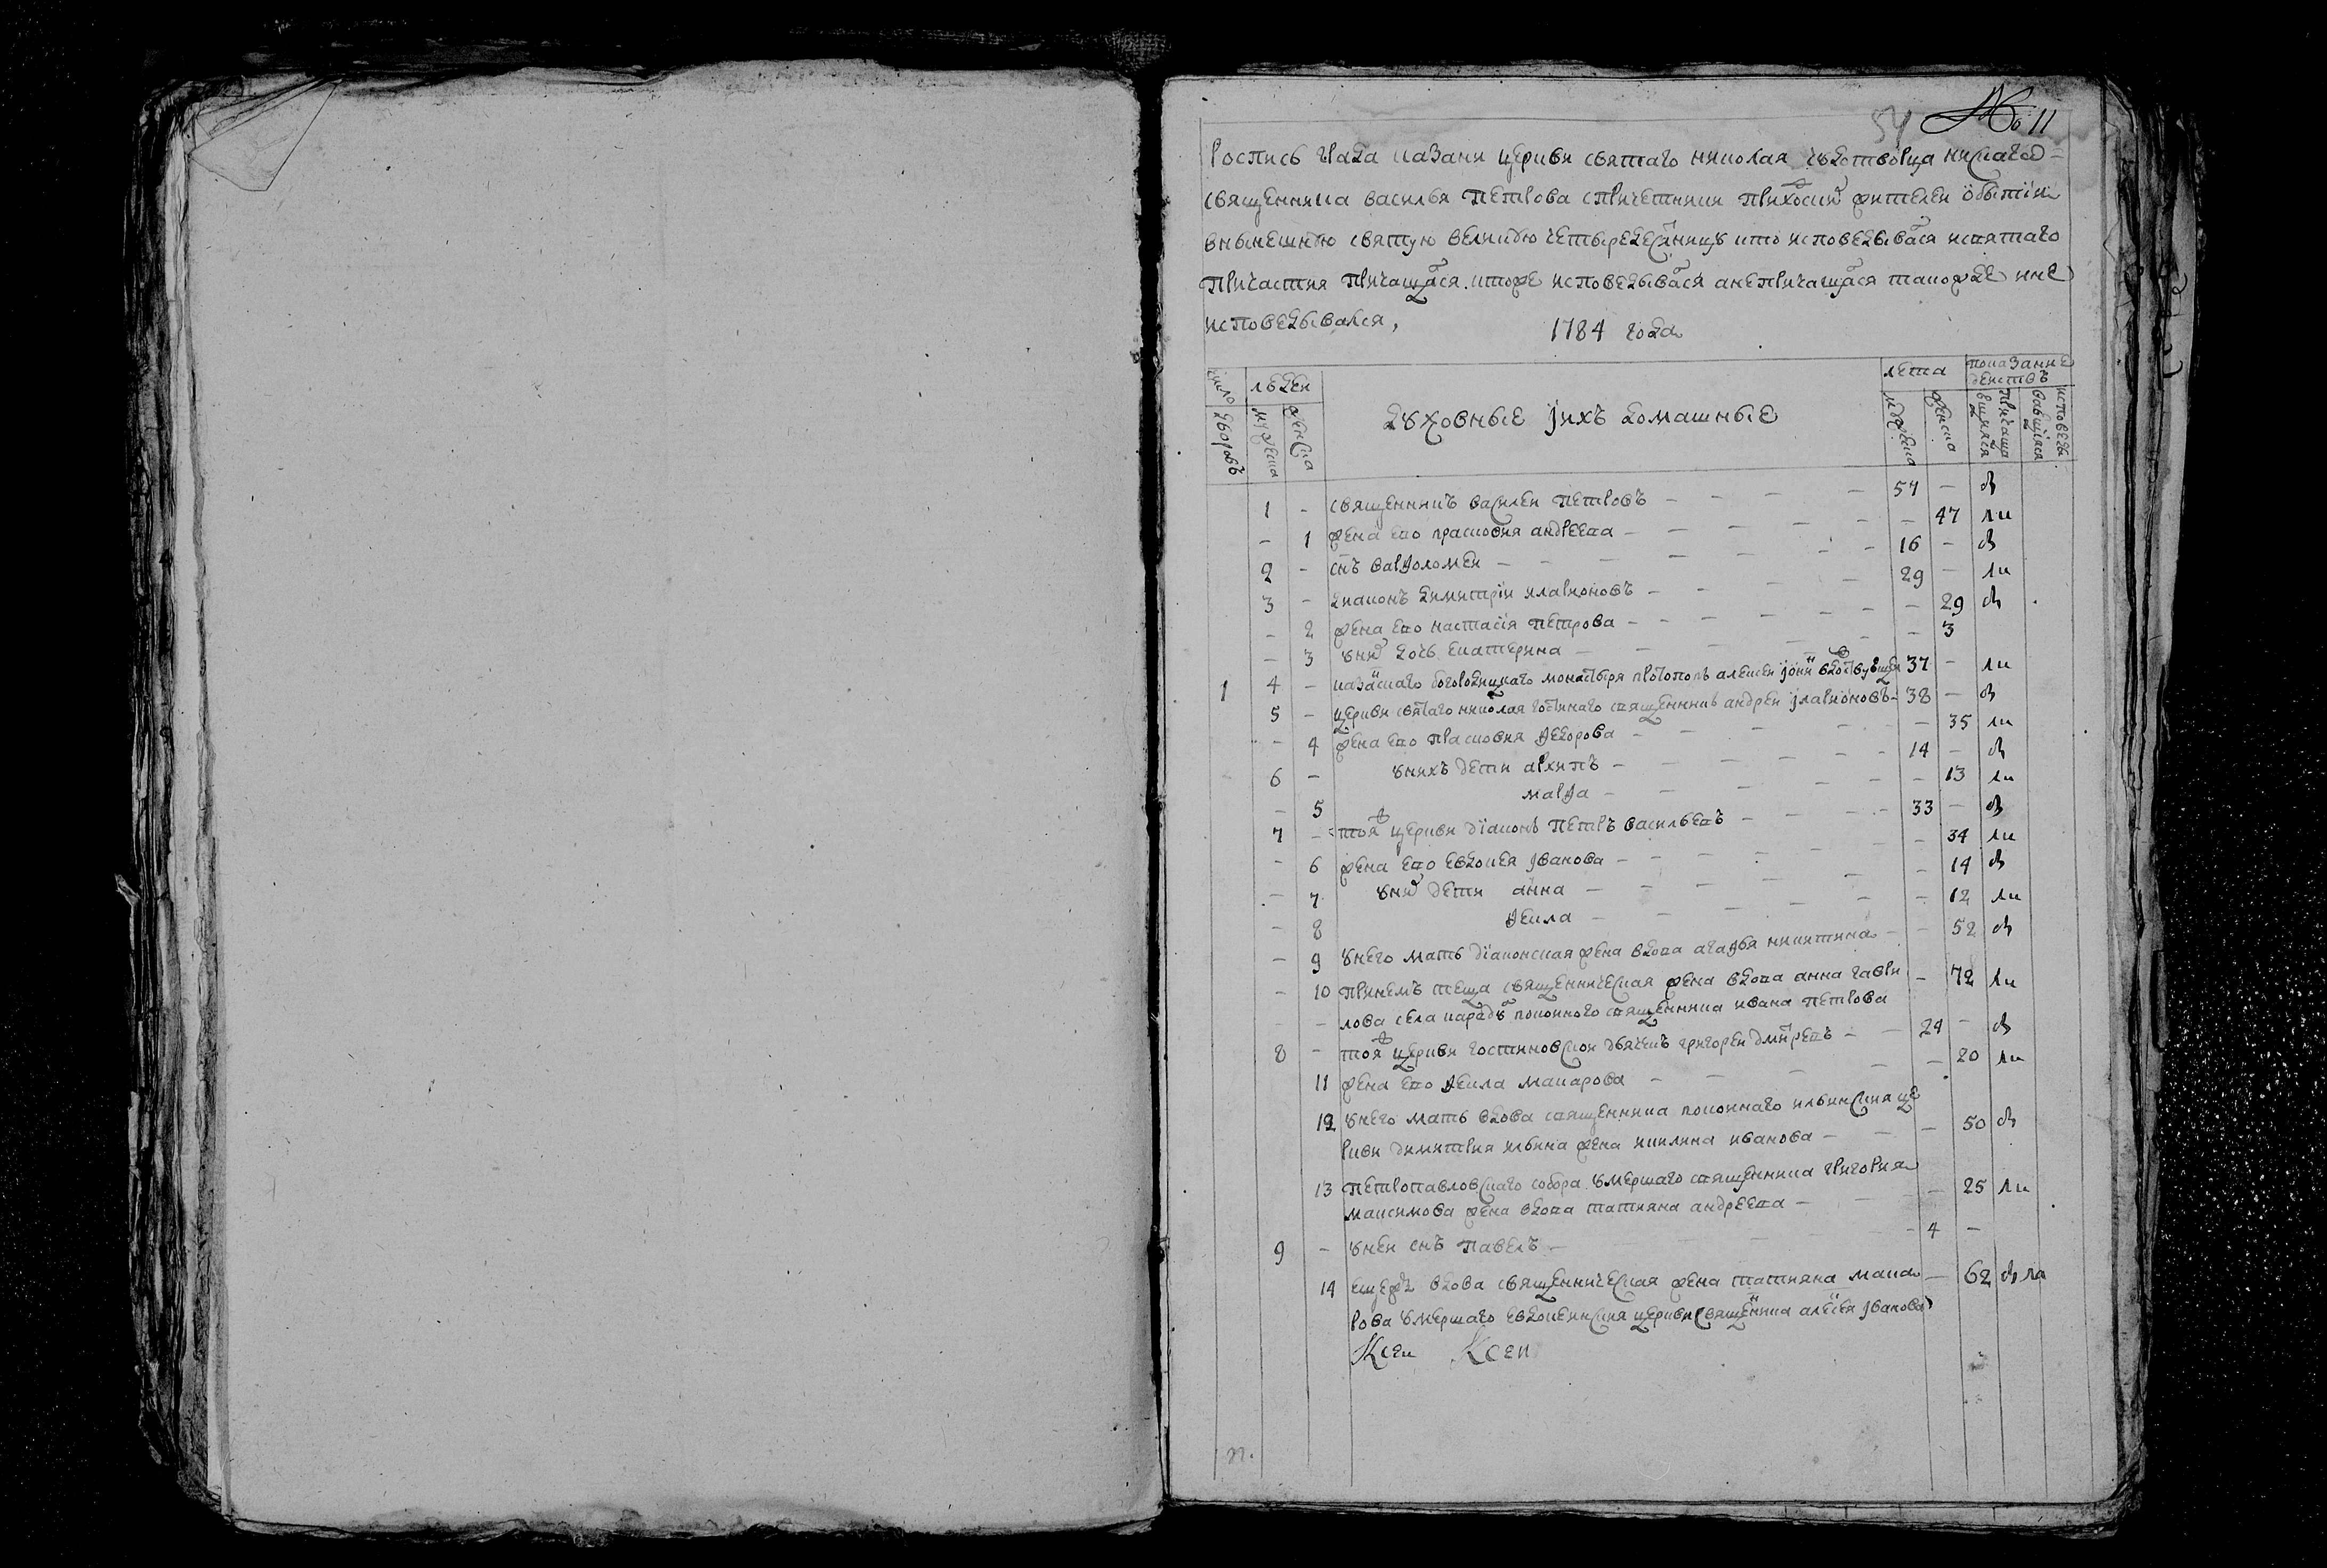 54 № 11
роспись града казани церкви святаго николая чюдотворца
священника василья петрова спричетники приходских жителей обытіи
внынешнюю святую великую четыредесятницу кто исповедывался исвятаго
причастия причащался. ктоже исповедывался анепричащался такожде ине
исповедывался,
1784 года
число дворовъ людей мужеска женска духовные іихъ домашные лета мужеска женска показание действъ
1 - священникъ василей петровъ - 54 -
- 1 жена ево прасковя андреева - - 47
2 - снъ варѳоломей - 16 -
3 - диаконъ димитрій иларионовъ - 29 -
- 2 жена ево настасія петрова - - 29
- 3 уних дочь екатерина - - 3
1 4 - казанскаго богородицкаго монастыря протопопъ алексей 37 -
5 - церкви святаго николая гостинаго священникъ андрей іларионовъ - 38 -
- 4 жена ево прасковя ѳедорова - - 35
6 - унихъ дети архипъ - 14 -
- 5 марѳа - - 13
7 - тоя церкви діаконъ петръ васильевъ - 33 -
- 6 жена ево евдокея іванова - - 34
- 7 уних дети анна - - 14
- 8 ѳекла - - 12
- 9 унего мать діаконская жена вдова агаѳья никитина - - 52
- 10 принемъ теща священническая жена вдова анна гаври - 72
- лова села покойного священника ивана петрова
8 - тоя церкви гостиновской дьячекъ григорей дмитреевъ - 24 -
11 жена ево ѳекла макарова - - 20
12 унего мать вдова священника покойнаго ильинския це
ркви димитрия ильина жена акилина иванова - - 50
13 петропавловскаго собора умершаго священника григория
максимова жена вдова татияна андреева - - 25
9 - уней снъ павелъ - 4 -
14 ещежъ вдова священническая жена татияна мака - 62
рова умершаго евдокеинския церкви священника алексея іванова